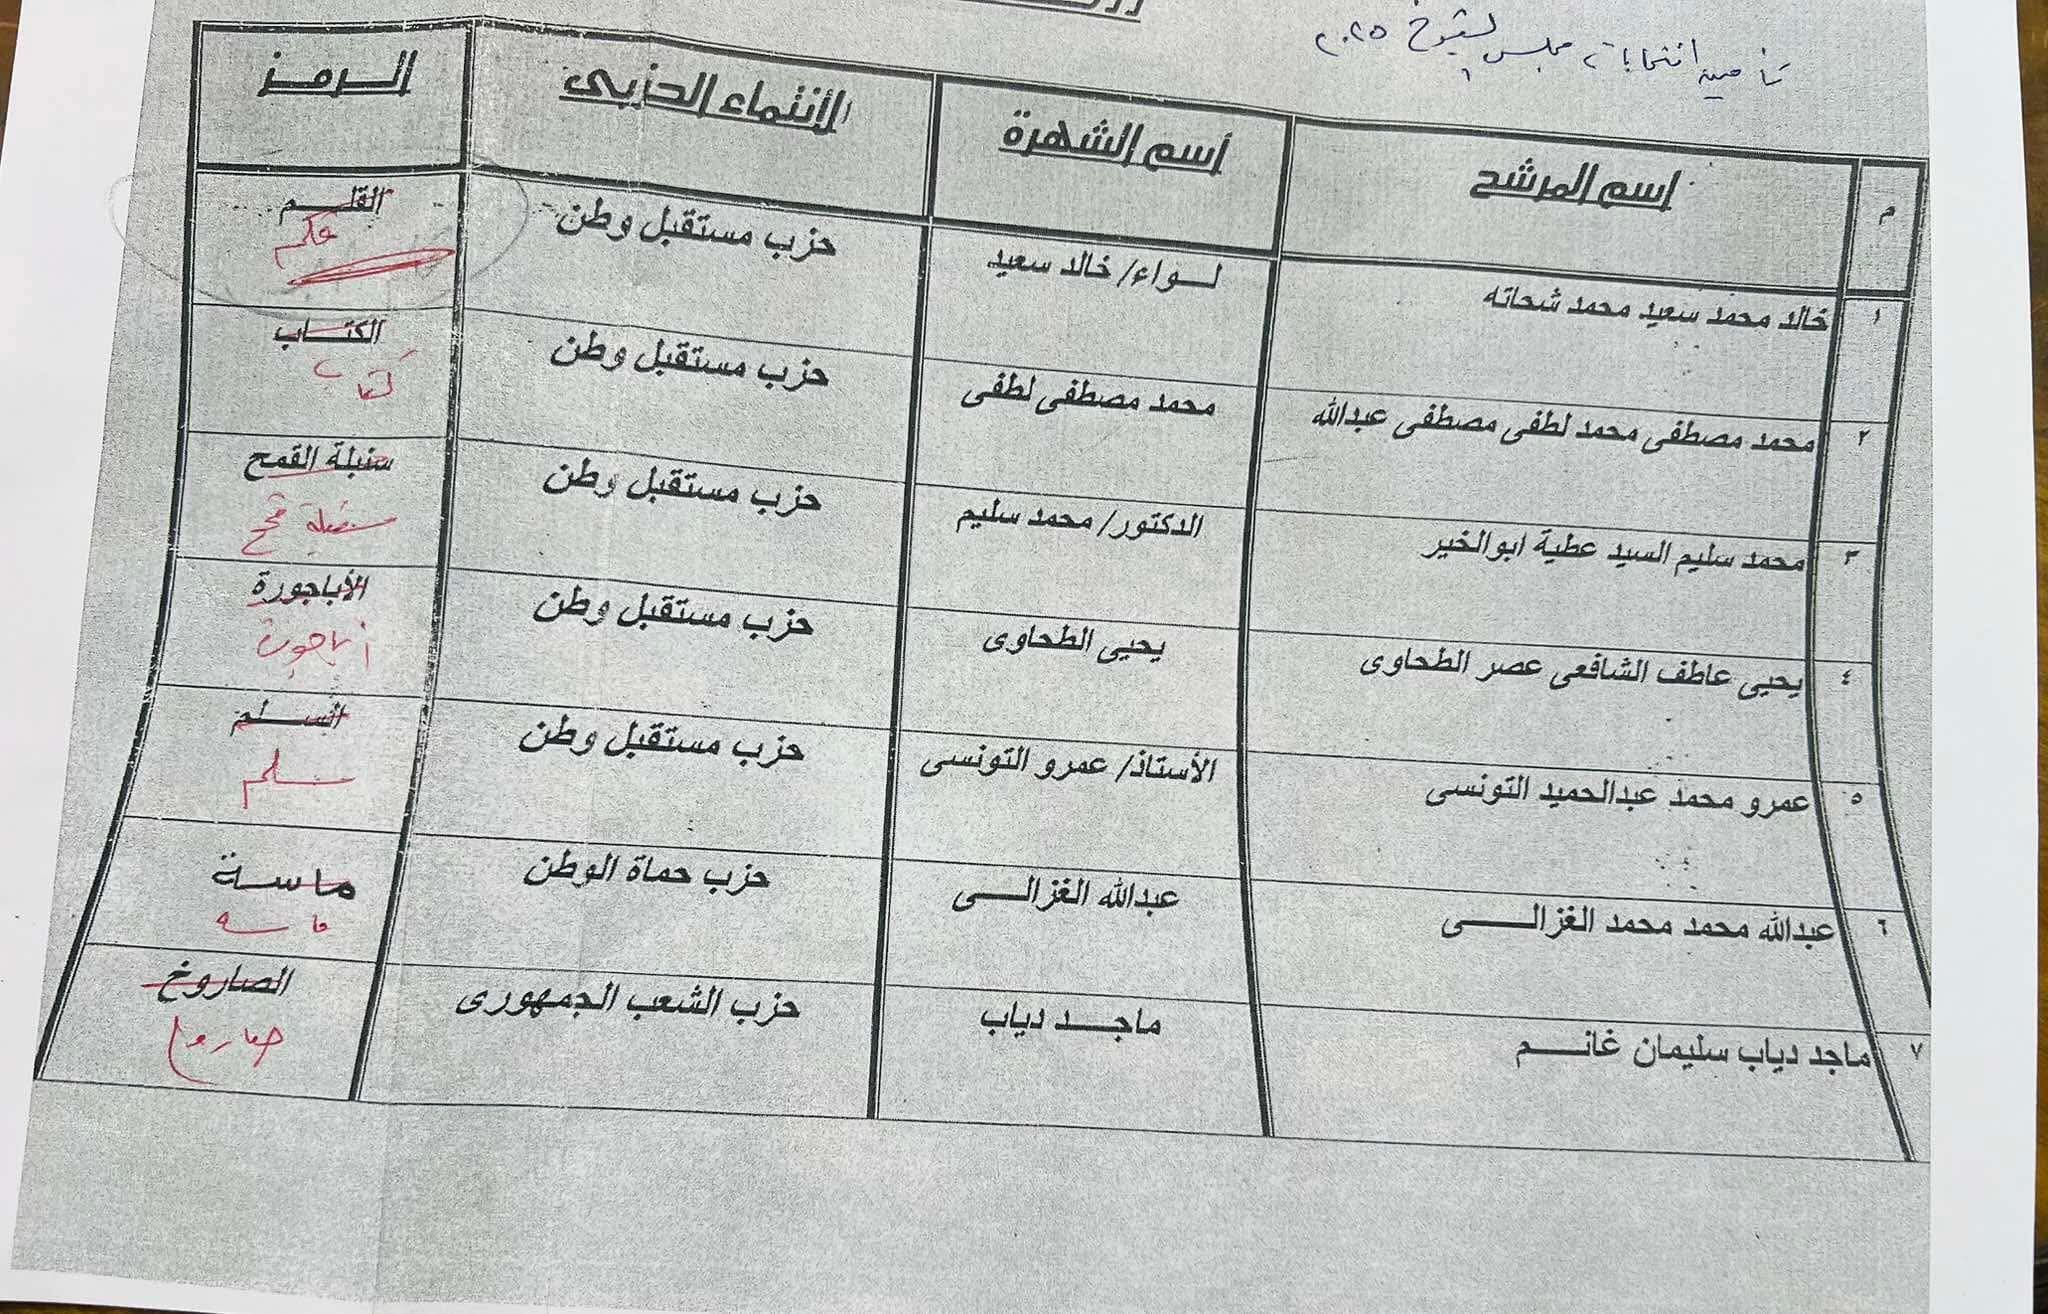 تأمين انتخابات مجلس الشيوخ ٢٠٢٥
م اسم المرشح أسم الشهرة الأنتماء الحزبى الرمز
١ خالد محمد سعيد محمد شحاته لواء/ خالد سعيد حزب مستقبل وطن القلم
٢ محمد مصطفى محمد لطفى مصطفى عبدالله محمد مصطفى لطفى حزب مستقبل وطن الكتاب
كتاب
٣ محمد سليم السيد عطية ابوالخير الدكتور/ محمد سليم حزب مستقبل وطن سنبلة القمح
سنبلة قمح
٤ يحيى عاطف الشافعى عصر الطحاوى يحيى الطحاوى حزب مستقبل وطن الأباجورة
أباجورة
٥ عمرو محمد عبدالحميد التونسى الأستاذ/ عمرو التونسى حزب مستقبل وطن السلم
سلم
٦ عبدالله محمد محمد الغزالى عبدالله الغزالى حزب حماة الوطن ماسة
ماسه
٧ ماجد دياب سليمان غانم ماجد دياب حزب الشعب الجمهورى الصاروخ
صاروخ